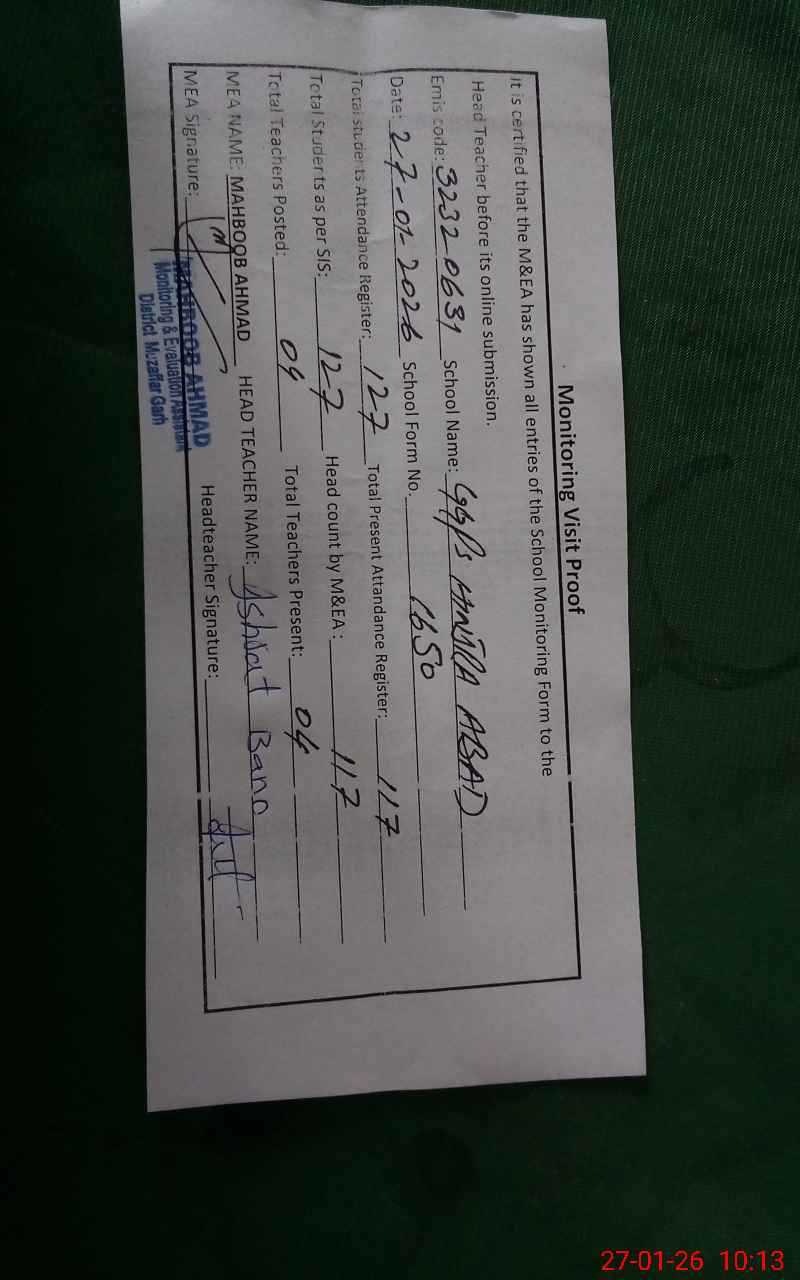 Monitoring Visit Proof
It is certified that the M&EA has shown all entries of the School Monitoring Form to the
Head Teacher before its online submission.
Emis code: 32320631 School Name: ABAD
Date: 27-01-2026 School Form No. 1650
Total students Attendance Register: 127 Total Present Attandance Register: 117
Total Students as per SIS: 127 Head count by M&EA: 117
Total Teachers Posted: 04 Total Teachers Present: 04
MEA NAME: MAHBOOB AHMAD HEAD TEACHER NAME: Ashrat Bano
MEA Signature: Headteacher Signature:
MAHBOOB AHMAD
Monitoring & Evaluation Assistant
District Muzaffar Garh
27-01-26 10:13